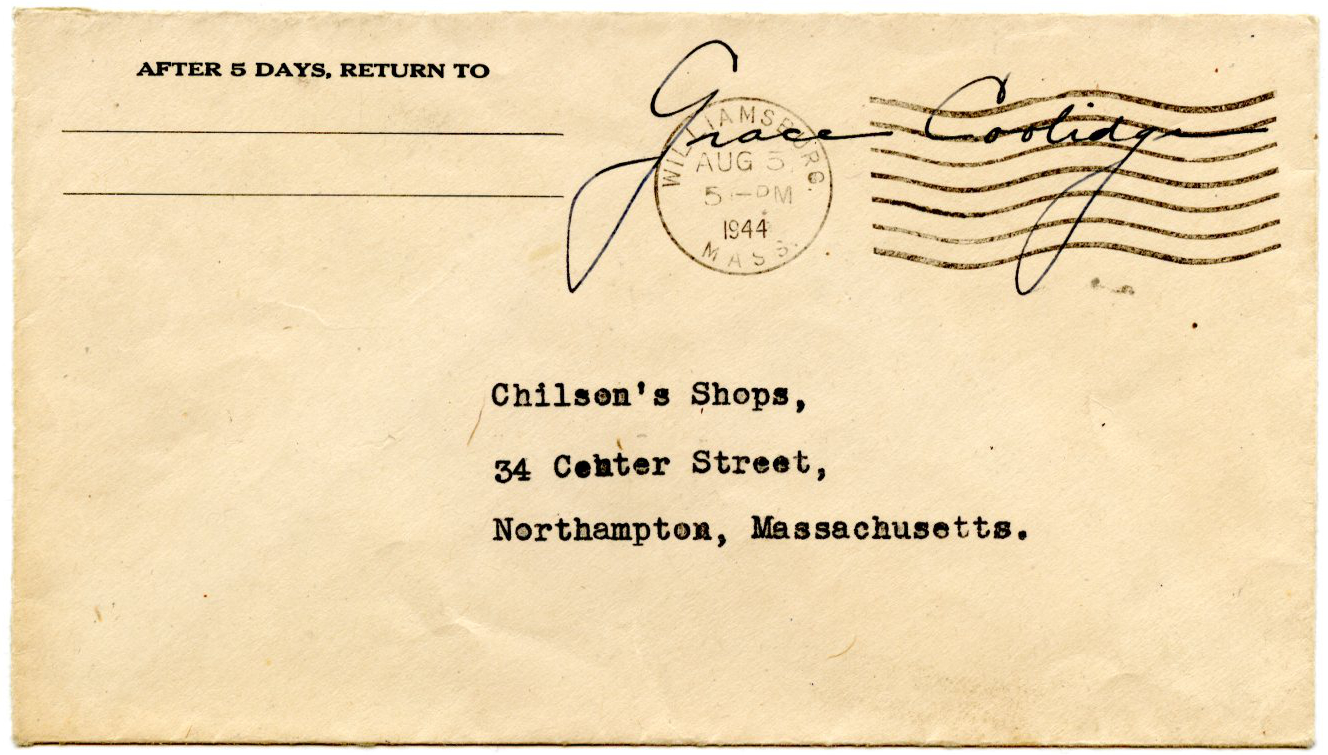 AFTER 5 DAYS, RETURN TO
Grace Coolidge
WILLIAMSBURG.
AUG 3
5 - PM
1944
MASS.
Chilson's Shops,
34 Center Street,
Northampton, Massachusetts.